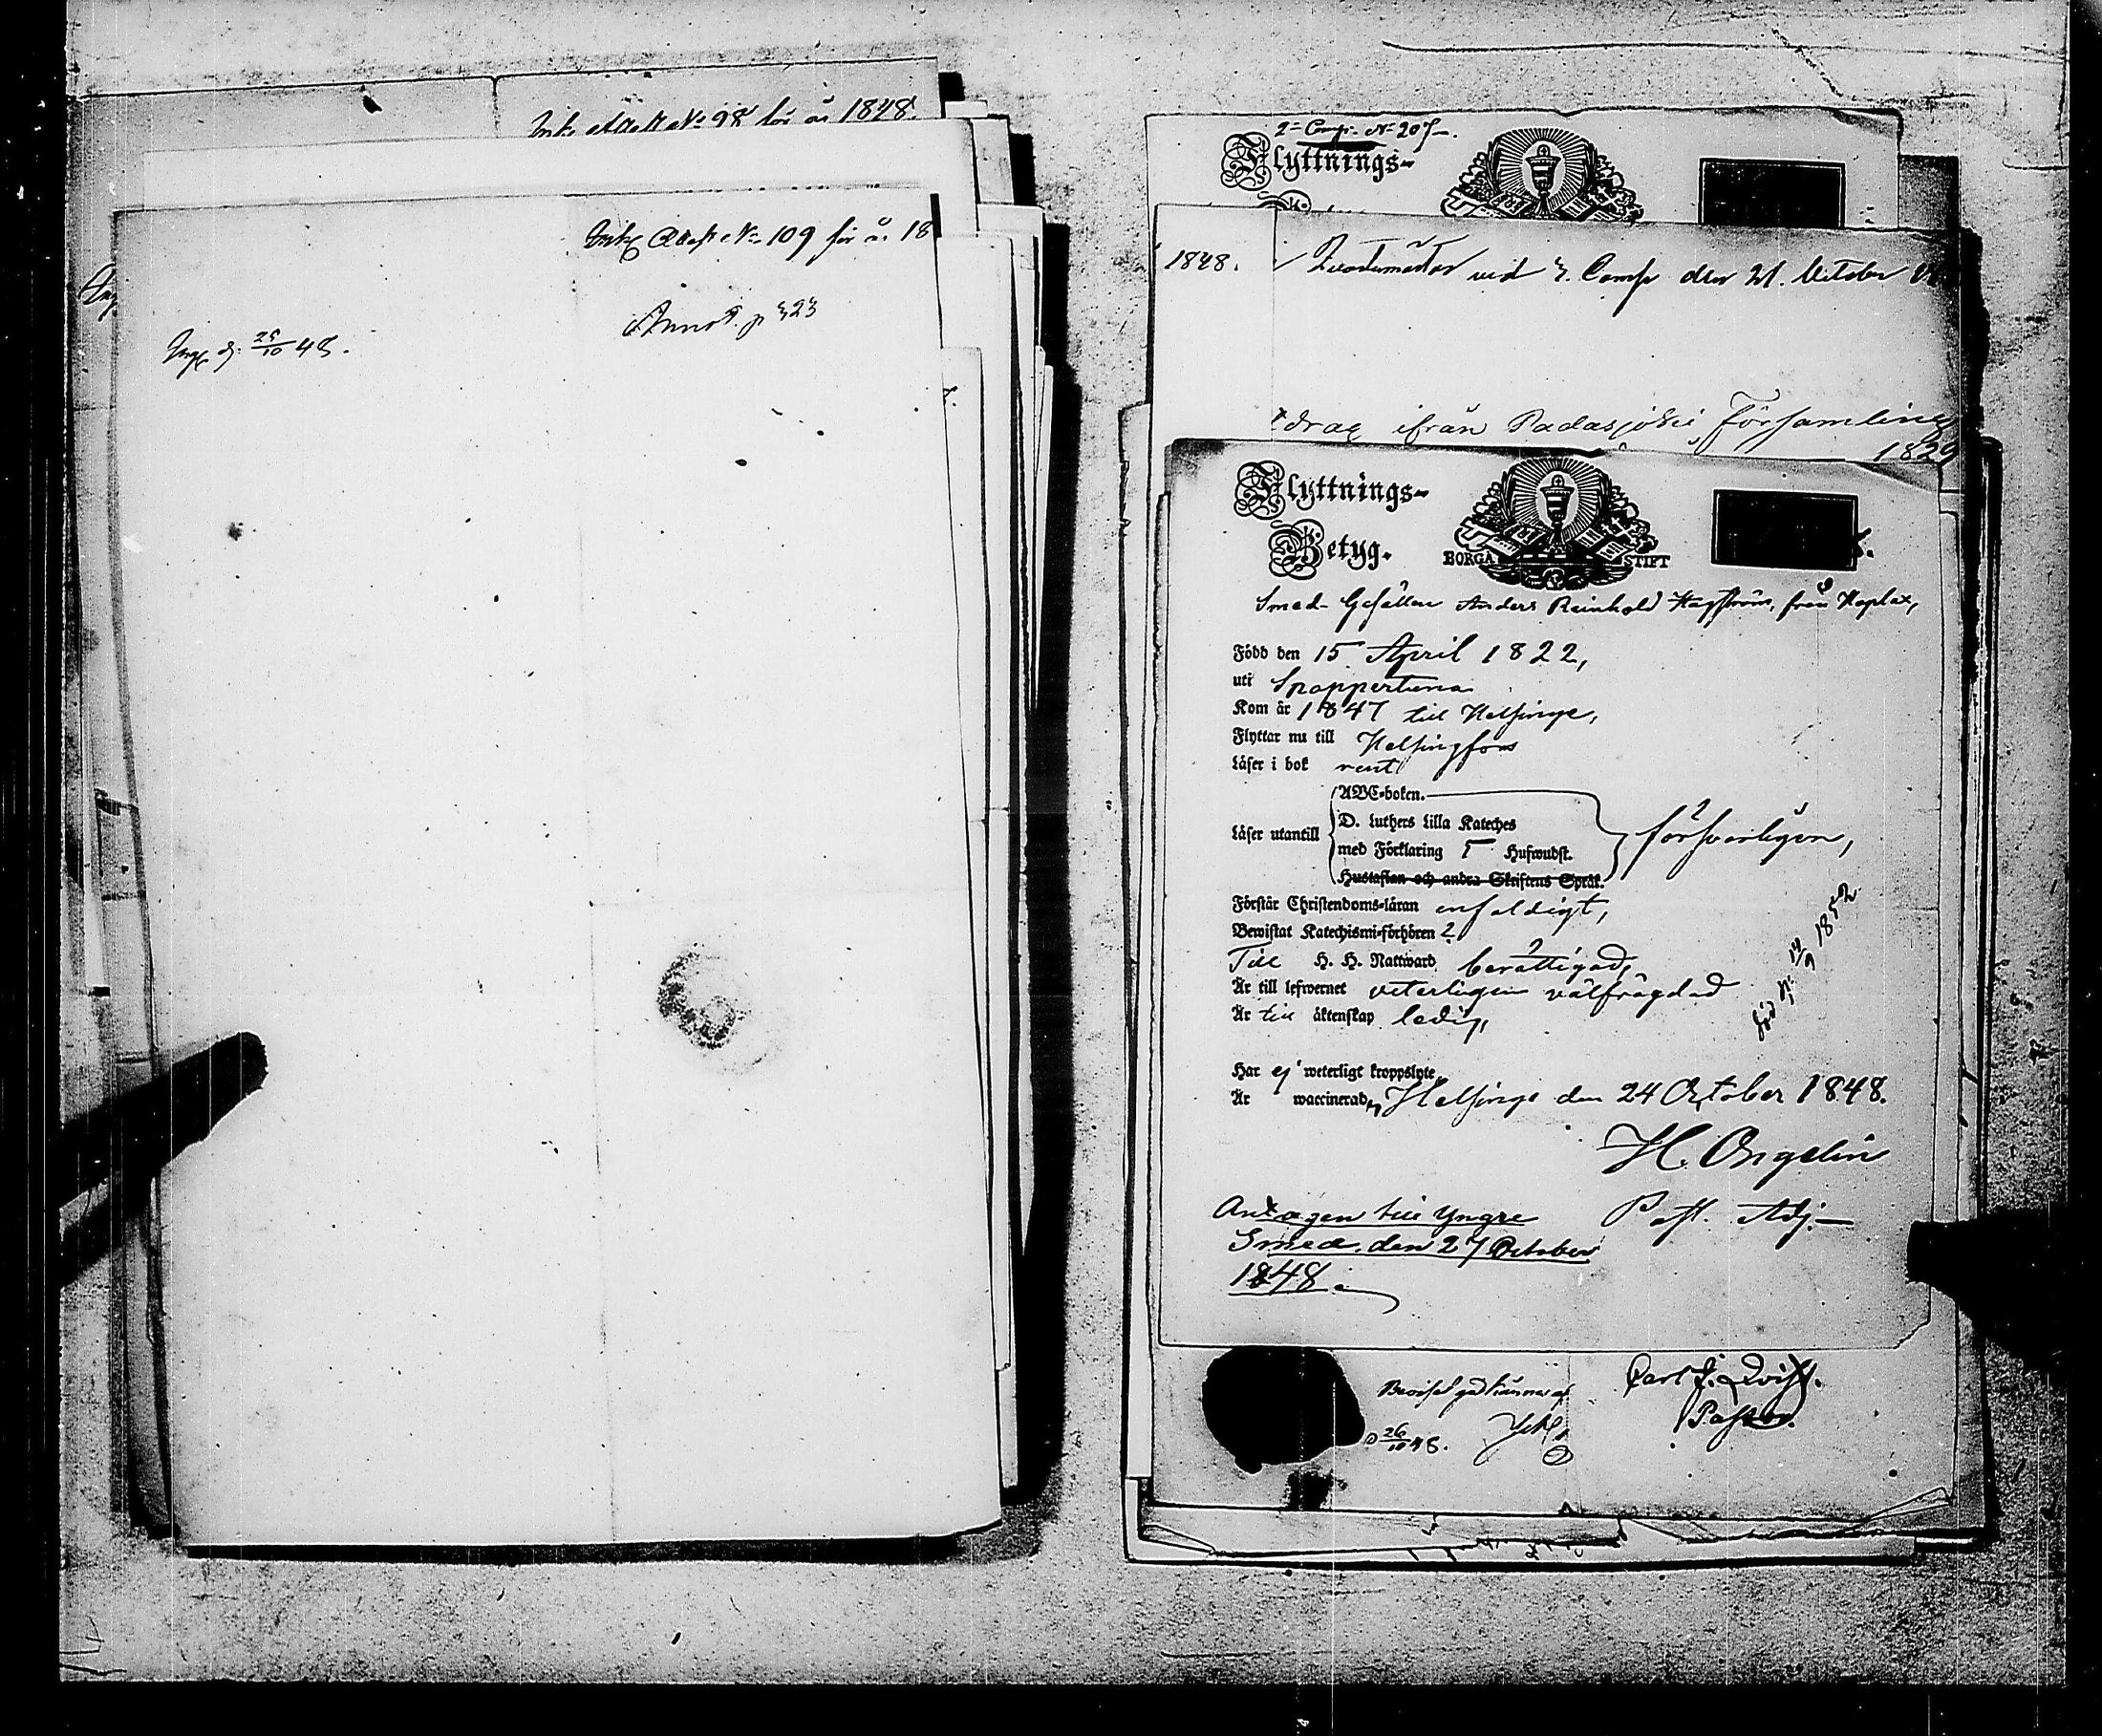 Ink. Attest No 98 för år 1848.
Ink. Attest No 109 för år 18
Annot. p 323
Ink. d. 25/10 48.
2 Comp. No 207
Flyttnings-
1848.
vid 3. Comp den 21. October
drag ifrån Padasjoki Församling
1829
Flyttnings-
Betyg.
BORGÅ STIFT
Smed-Gesällen Anders Reinhold Hagström, från Hoplax,
Född den 15 April 1822,
uti Snappertuna
Kom år 1847 till Helsinge,
Flyttar nu till Helsingfors
Läser i bok rent
ABC-boken.
Läser utantill D. Luthers Lilla Kateches
med Förklaring 5 Hufwudst. försvarligen,
Hustaflan och andra Skriftens Språk.
Förstår Christendoms-läran enfaldigt,
Bewistat Katechismi-förhören 2
Till H. H. Nattward berättigad,
Är till lefwernet veterligen välfrägdad
Är till äktenskap ledig,
död 14/9 1852
Har ej weterligt kroppslyte,
Är waccinerad, Helsinge den 24 October 1848.
H. Ongelin
Past. Adj.
Antagen till Yngre
Smed. den 27 October
1848.
Carl J. Qvist.
Pastor.
26/10 48.